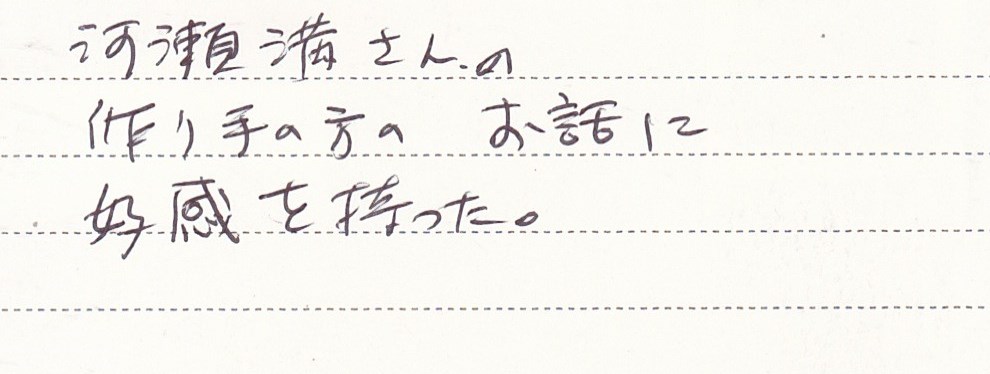 河瀬満さんの
作り手の方の お話に
好感を持った。